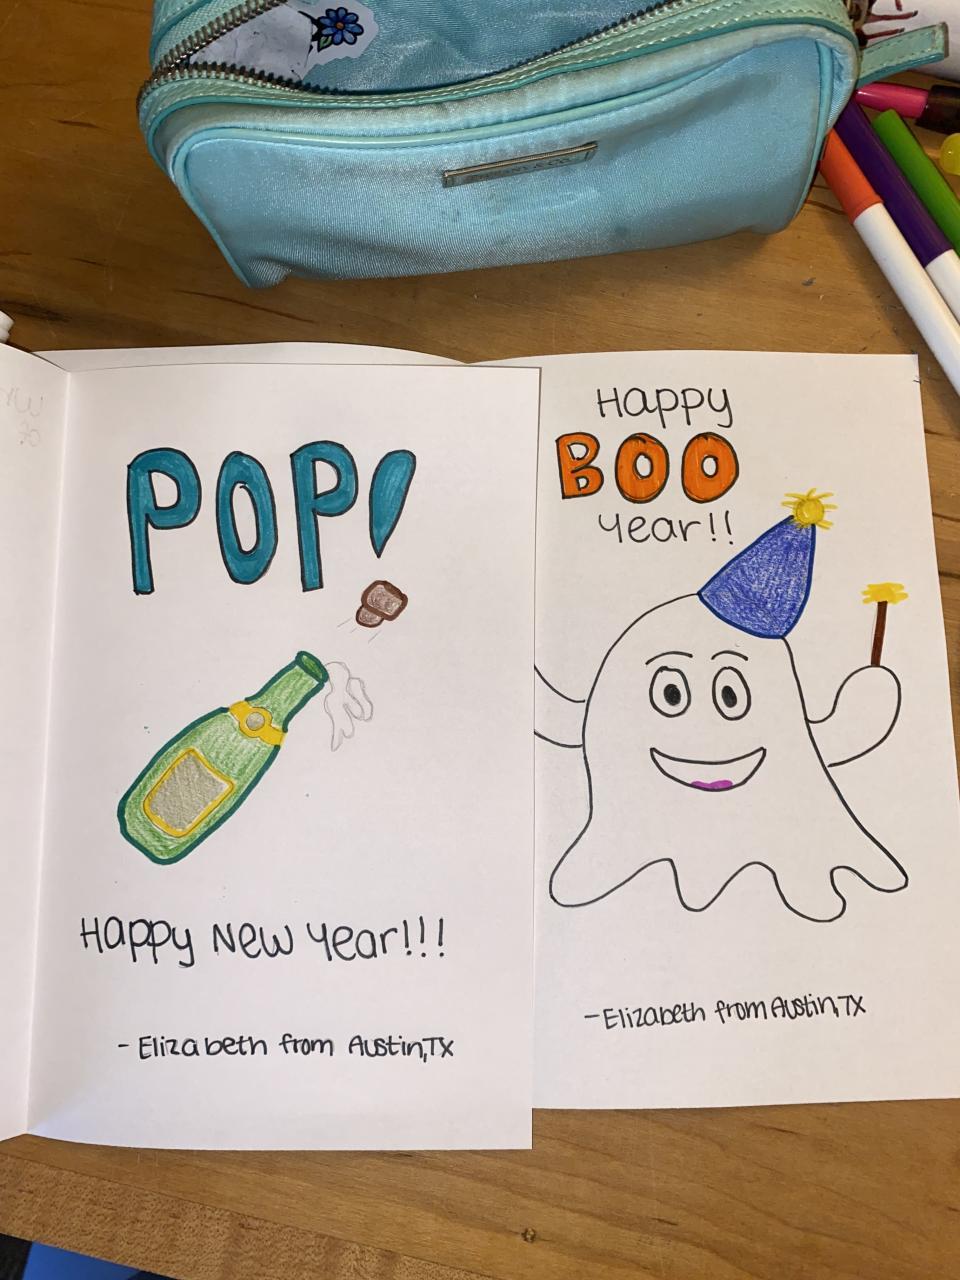 POP!
Happy New Year!!!
- Elizabeth from Austin,TX
Happy
BOO
Year!!
- Elizabeth from Austin,TX